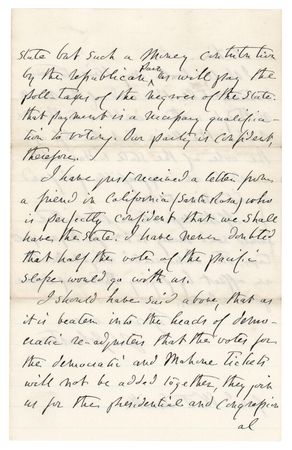 state but such a money contribution
by the republican party as will pay the
poll-taxes of the negroes of the state.
that payment is a necessary qualifica-
tion to voting. Our party is confident,
therefore.
I have just received a letter from
a friend in California (Santa Rosa) who
is perfectly confident that we shall
have the state. I have never doubted
that half the vote of the pacific
slope would go with us.
I should have said above, that as
it is beaten into the heads of demo-
cratic re-adjusters that the votes for
the democratic and Mahone tickets
will not be added together, they join
us for the presidential and congression
al